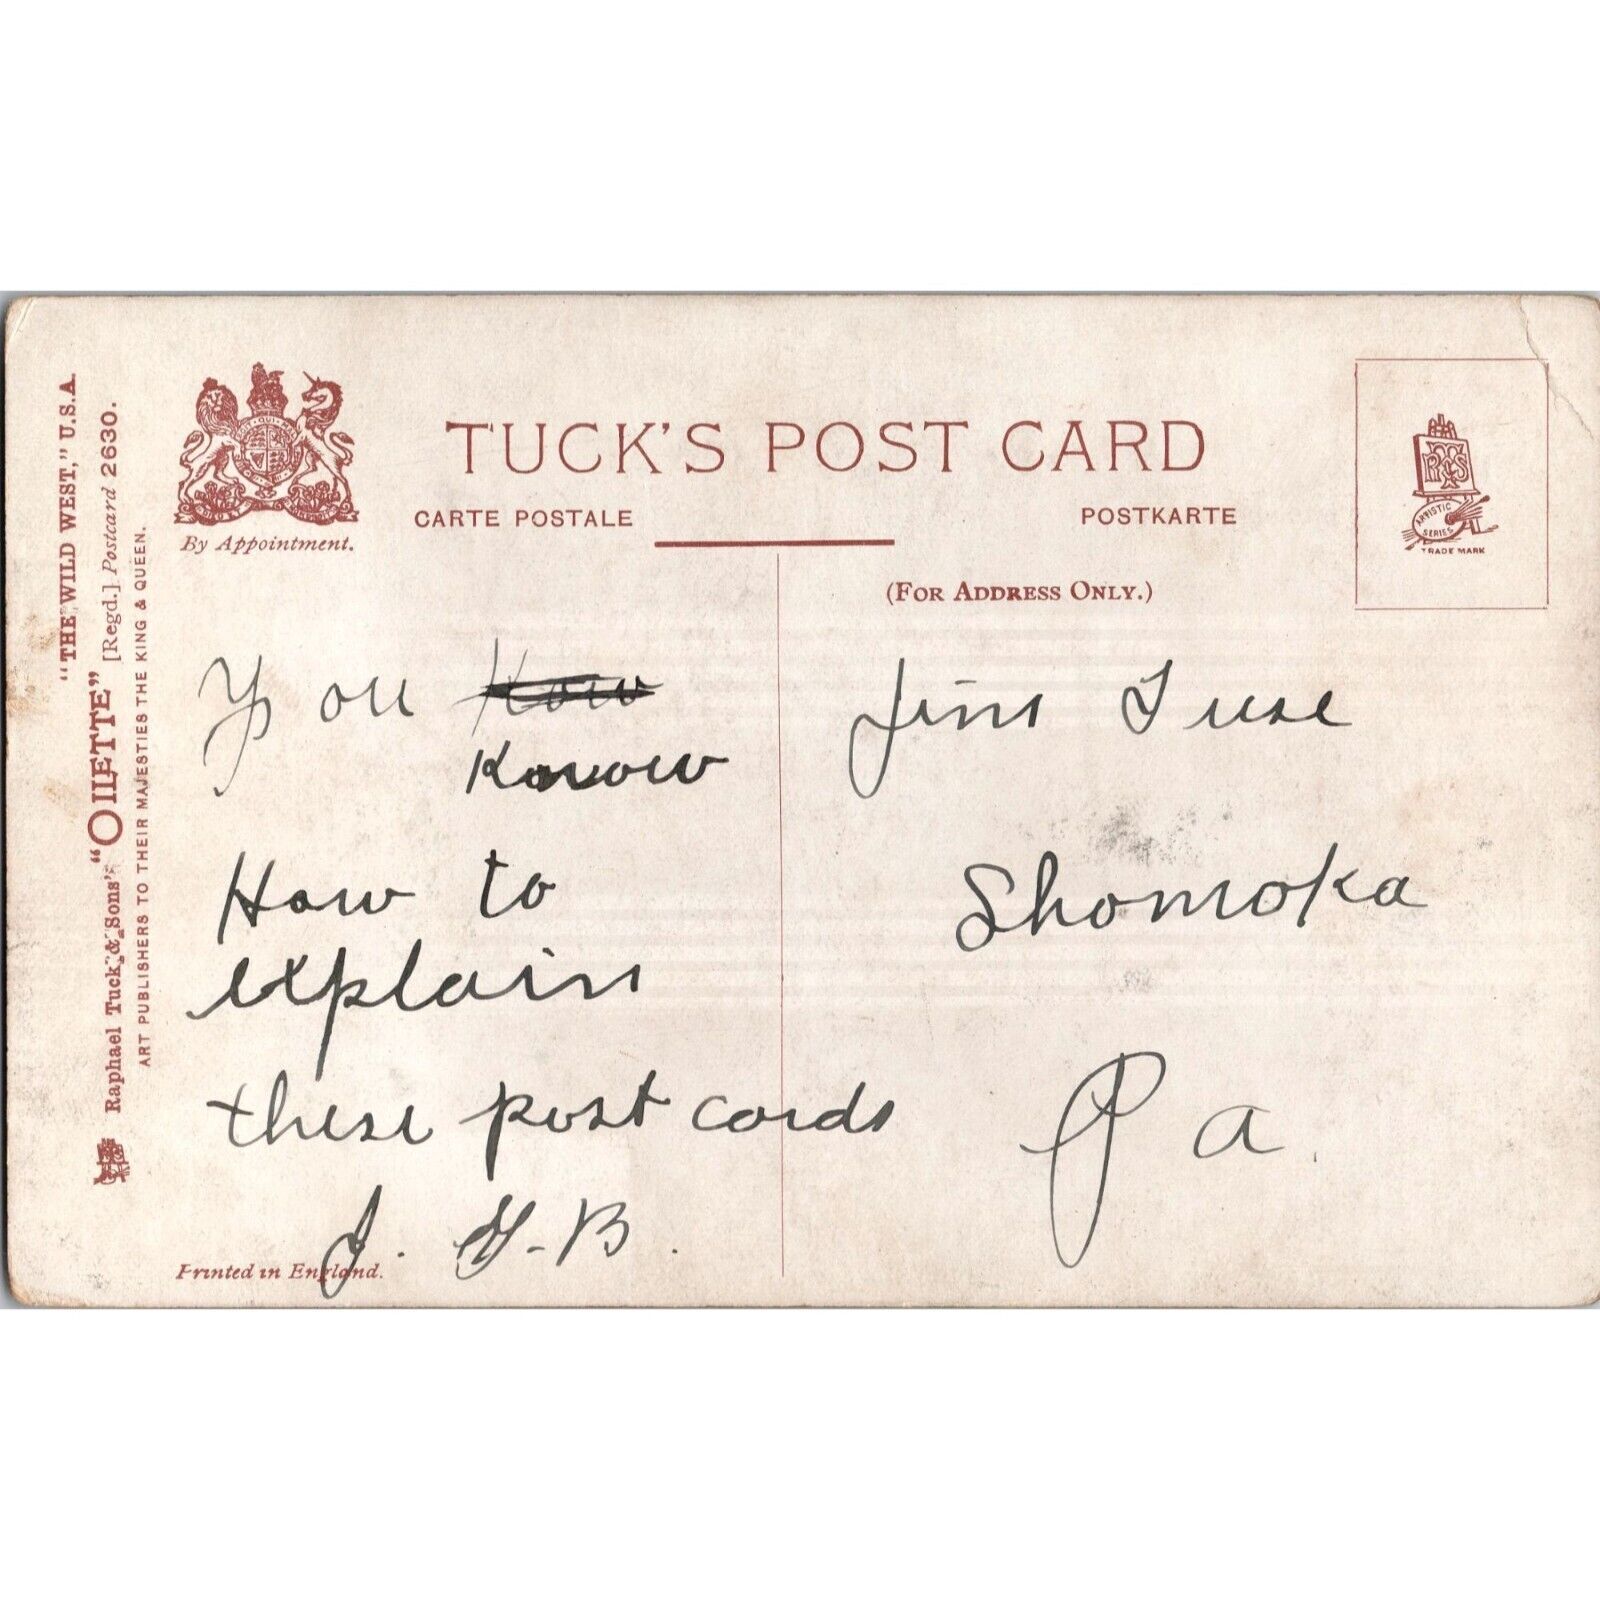 "THE WILD WEST," U.S.A.
Raphael Tuck & Sons' "OILETTE" [Regd.] Postcard 2630.
ART PUBLISHERS TO THEIR MAJESTIES THE KING & QUEEN.
By Appointment.
TUCK'S POST CARD
CARTE POSTALE
POSTKARTE
(FOR ADDRESS ONLY.)
RTS
ARTISTIC
SERIES
TRADE MARK
You Kow
Know
How to
explain
these post cards
J. H. B.
Jim
Shomoka
Pa.
Printed in England.